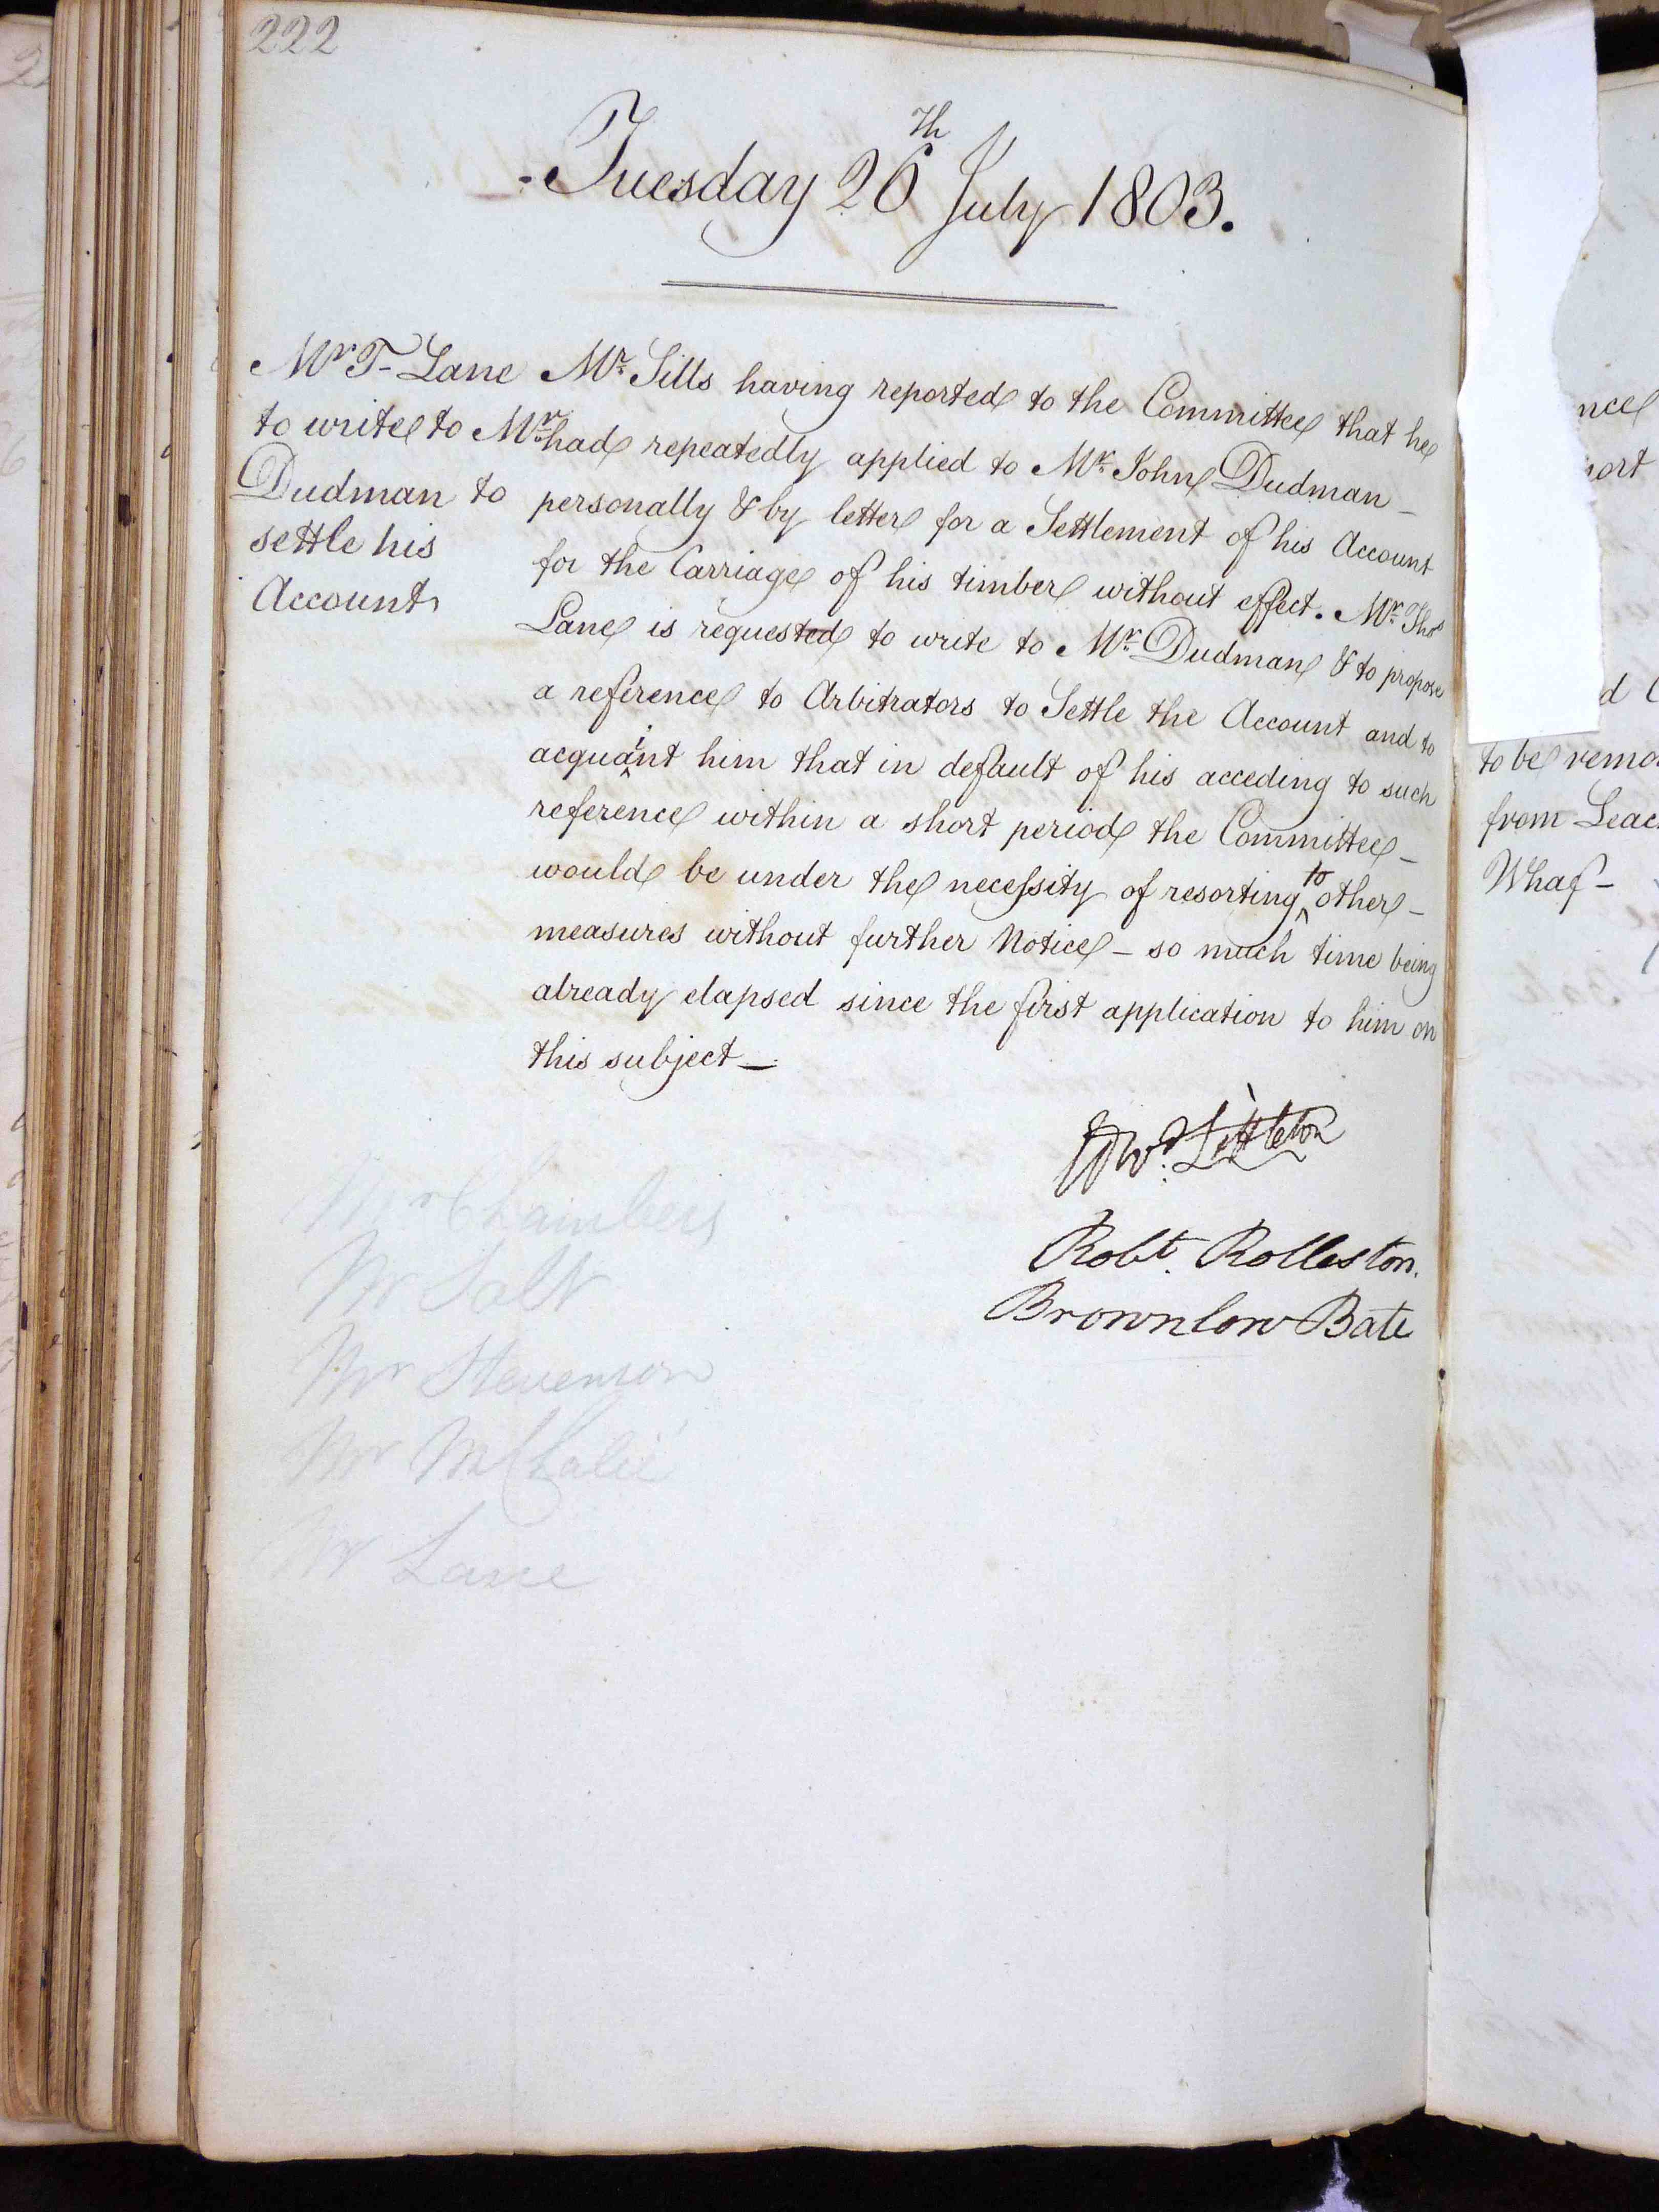 222
Tuesday 26th July 1803.
Mr T- Lane
to write to Mr
Dudman to
settle his
Account
Mr. Sills having reported to the Committee that he
had repeatedly applied to Mr. John Dudman -
personally & by letter for a Settlement of his Account
for the Carriage of his timber without effect. Mr. Thos
Lane is requested to write to Mr. Dudman & to propose
a reference to Arbitrators to Settle the Account and to
acquaint him that in default of his acceding to such
reference within a short period the Committee -
would be under the necessity of resorting to other -
measures without further Notice - so much time being
already elapsed since the first application to him on
this subject -
Edwd. Littleton
Robt. Rolleston.
Brownlow Bate
Mr Chambers
Mr Salt
Mr Stevenson
Mr
Mr Lane
to be
from
Whaf -